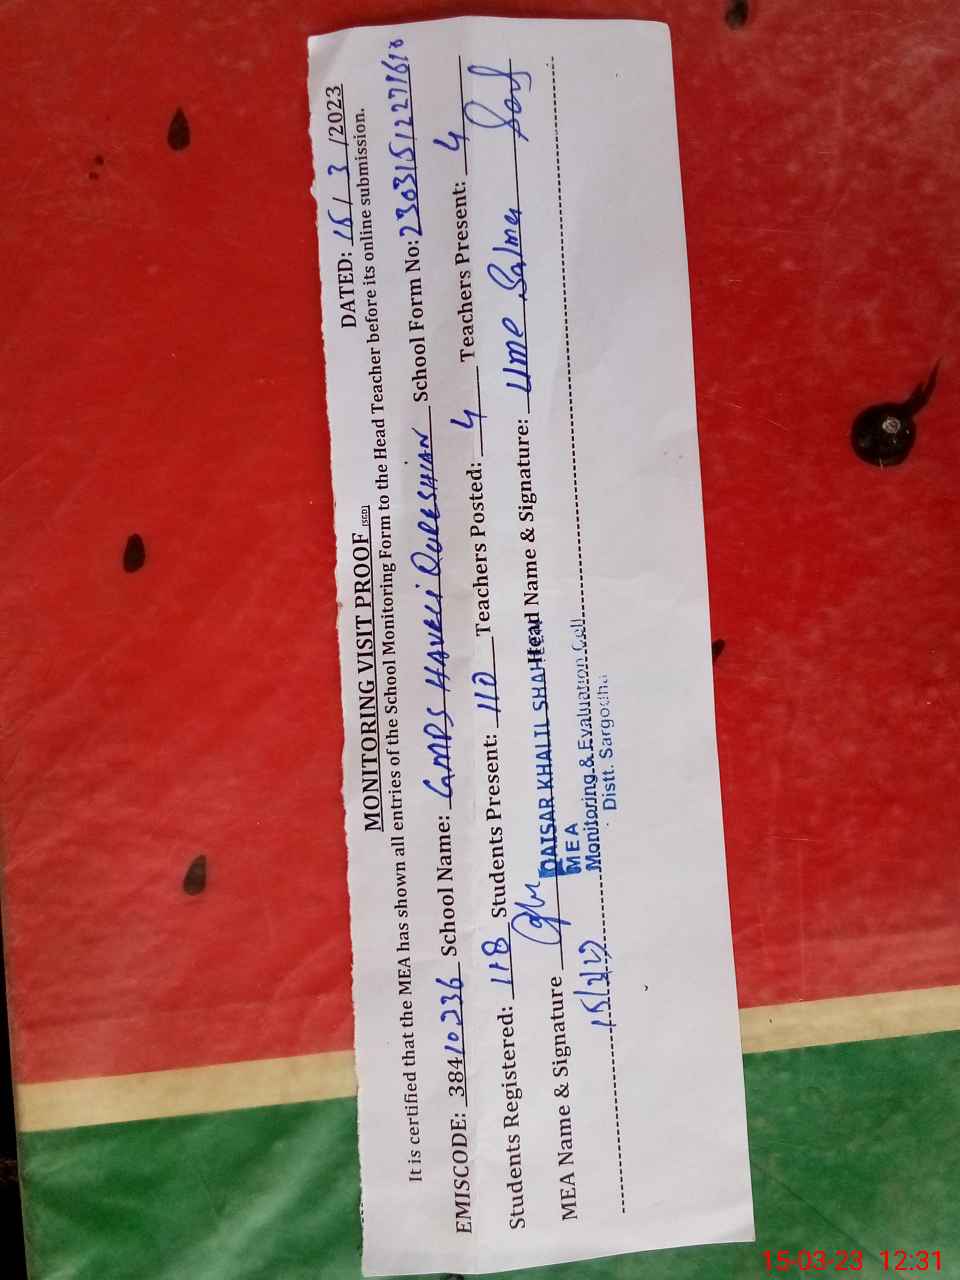 MONITORING VISIT PROOF (SGD)
DATED: 15 / 3 /2023
It is certified that the MEA has shown all entries of the School Monitoring Form to the Head Teacher before its online submission.
EMISCODE: 38410236 School Name: GMPS HAVELI QURESHIAN School Form No: 23031512271610
Students Registered: 118 Students Present: 110 Teachers Posted: 4 Teachers Present: 4
MEA Name & Signature Head Name & Signature: Ume Salma
QAISAR KHALIL SHAH
MEA
Monitoring & Evaluation Cell
Distt. Sargodha
15-03-23 12:31